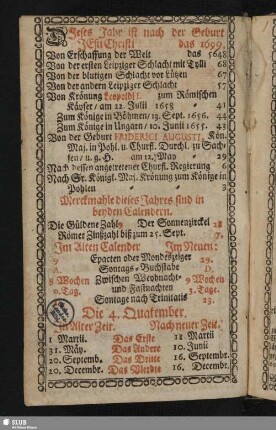 Dieses Jahr ist nach der Geburt
JEsu Christi das 1699.
Von Erschaffung der Welt das 5648
Von der ersten Leipziger Schlacht mit Tylli 68
Von der blutigen Schlacht vor Lützen 67
Von der andern Leipziger Schlacht 57
Von Krönung Leopoldi I. zum Römischen
Käyser / am 22. Julii 1658 41
Zum Könige in Böhmen / 13. Sept. 1656. 44
Zum Könige in Ungarn / 10. Junii 1655. 43
Von der Geburt FRIDERICI AUGUSTI, Kön.
Maj. in Pohl. u. Churfl. Durchl. zu Sach-
sen / u. g. H. am 12. May 29
Nach dessen angetretener Churfl. Regierung 6
Nach Sr. Königl. Maj. Krönung zum Könige in
Pohlen 3
Merckmahle dieses Jahres sind in
beyden Calendern.
Die Güldene Zahl 9 Der Sonnenzirckel 28
Römer Zinßzahl biß zum 25. Sept. 7.
Im Alten Calender Im Neuen:
9 Epacten oder Mondeszeiger 29.
A. Sontags-Buchstabe D.
8 Wochen Zwischen Weyhnacht- 9 Wochen
0. Tag. und Fastnachten 3. Tage.
Sontage nach Trinitatis 23.
Die 4. Quatember.
Im Alter Zeit. Nach neuer Zeit.
1 Martii. Das Erste 11 Martii
31. Mäy. Das Andere 10. Junii
20. Septemb. Das Dritte 16. Septembr.
20. Decembr. Das Vierdte 16. Decembr.
SLUB